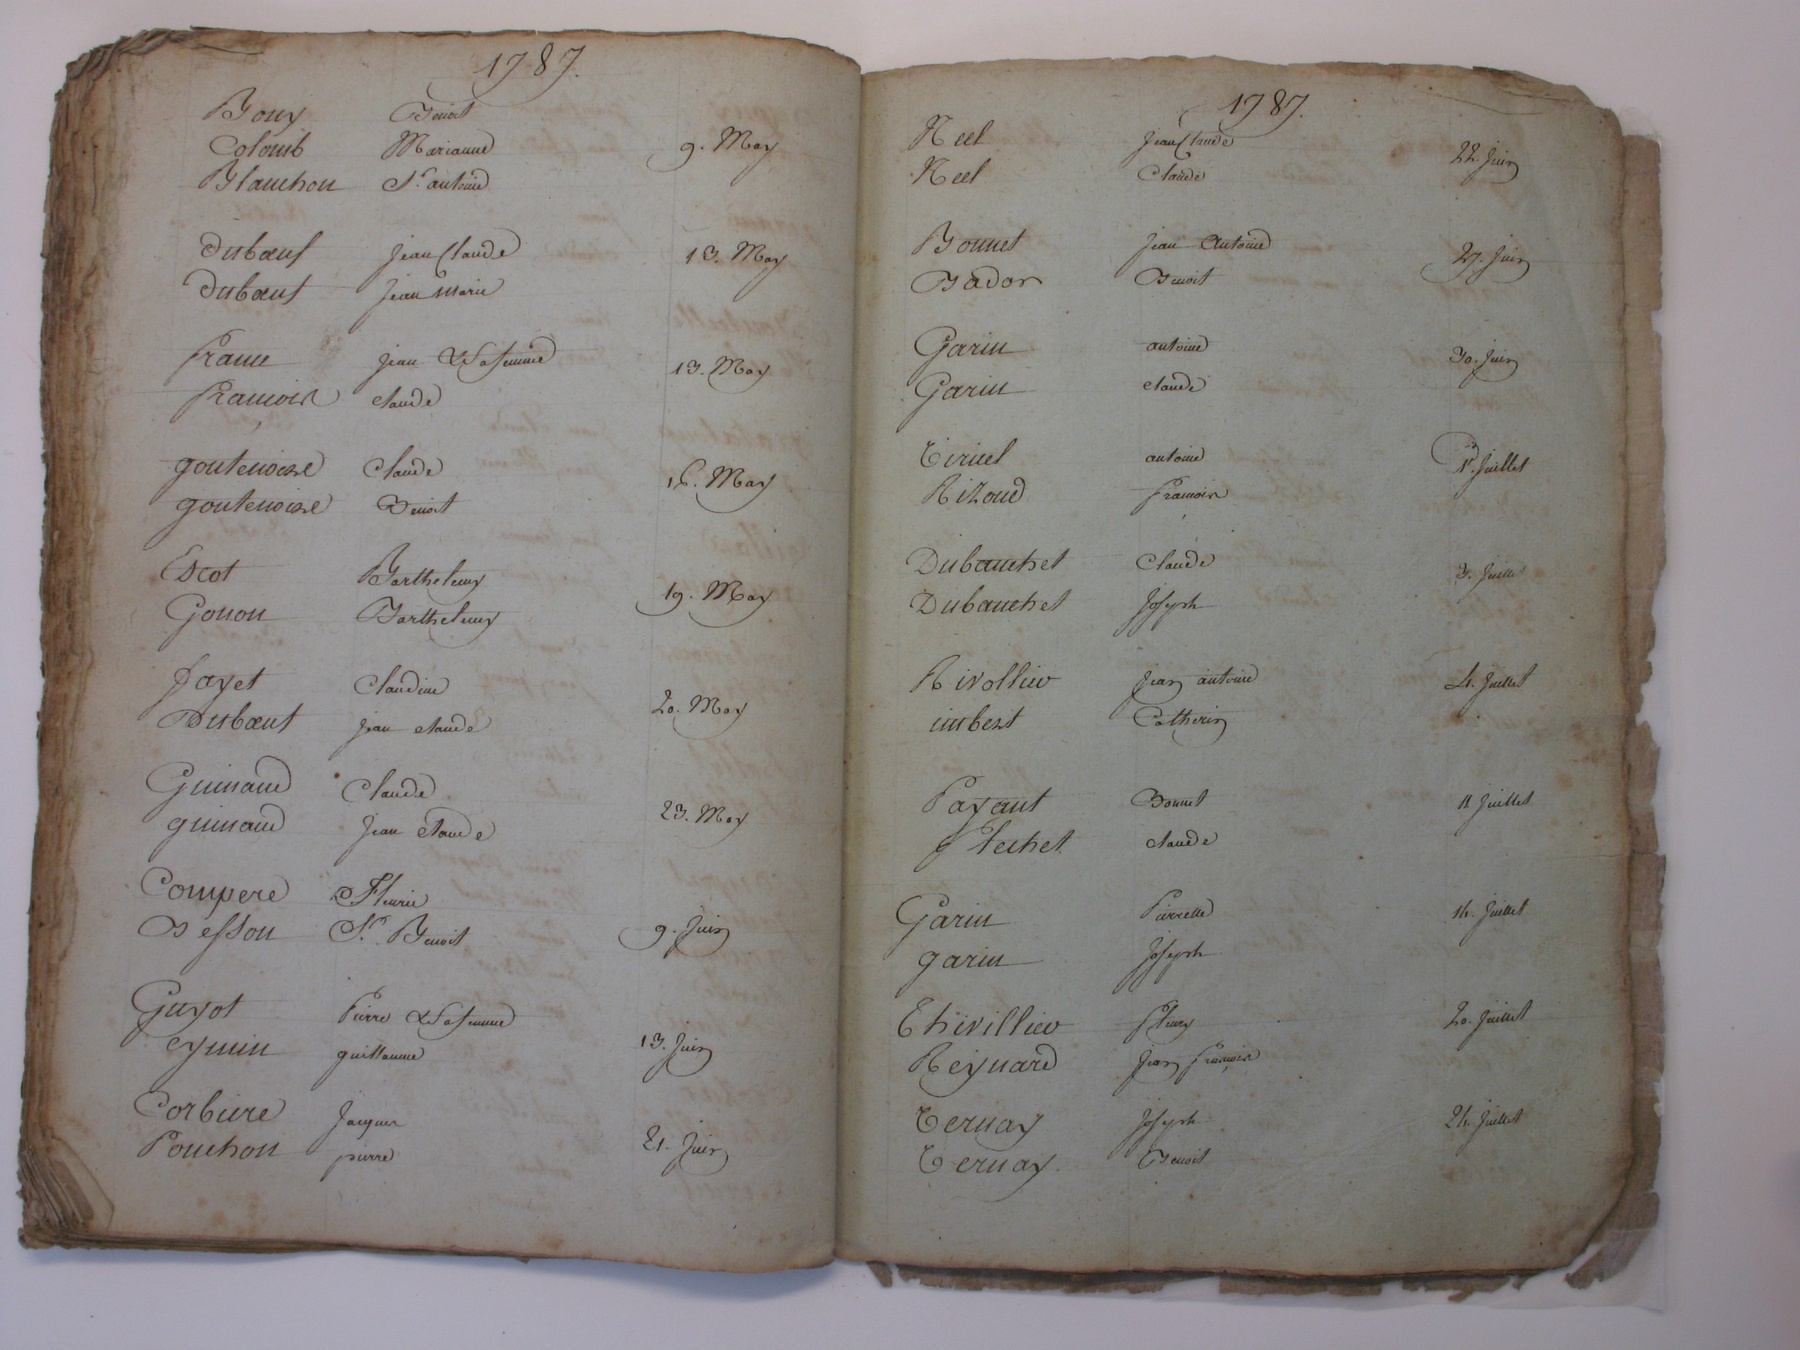 1787.
Bouy Benoit
Colomb Marianne 9. May
Blanchon Sr. antoine
Dubœuf Jean Claude 13. May
Dubœuf Jean Marie
france jean & Sa femme 13. May
francois claude
goutenoire Claude 16. May
goutenoire Benoit
Escot Barthelemy
Gonon Barthelemy 19. May
fayet Claudine
Dubœuf jean claude 20. May
Guinaud Claude
guinaud Jean Claude 23. May
Compere Fleurie
Sr. Benoit 9. Juin
Guyot Pierre & Sa femme
eymin guillaume 13. Juin
Corbiere Jacques
Ponchon pierre 21. Juin
1787.
Neel Jean Claude 22. Juin
Neel Claude
Bonnet Jean Antoine 27. Juin
Bador Benoit
Garin antoine 30. Juin
Garin claude
Tivuel antoine 1er. Juillet
Rizoud francois
Dubanchet Claude 3. Juillet
Dubanchet Joseph
Rivollier Jean antoine 4. Juillet
imbert Catherin
Payant Bonnet 11 Juillet
flechet claude
Garin Pierrette 14. Juillet
garin Joseph
Thivillier fleury 20. Juillet
Reynard Jean François
Ternay Joseph 24. Juillet
Ternay. Benoit